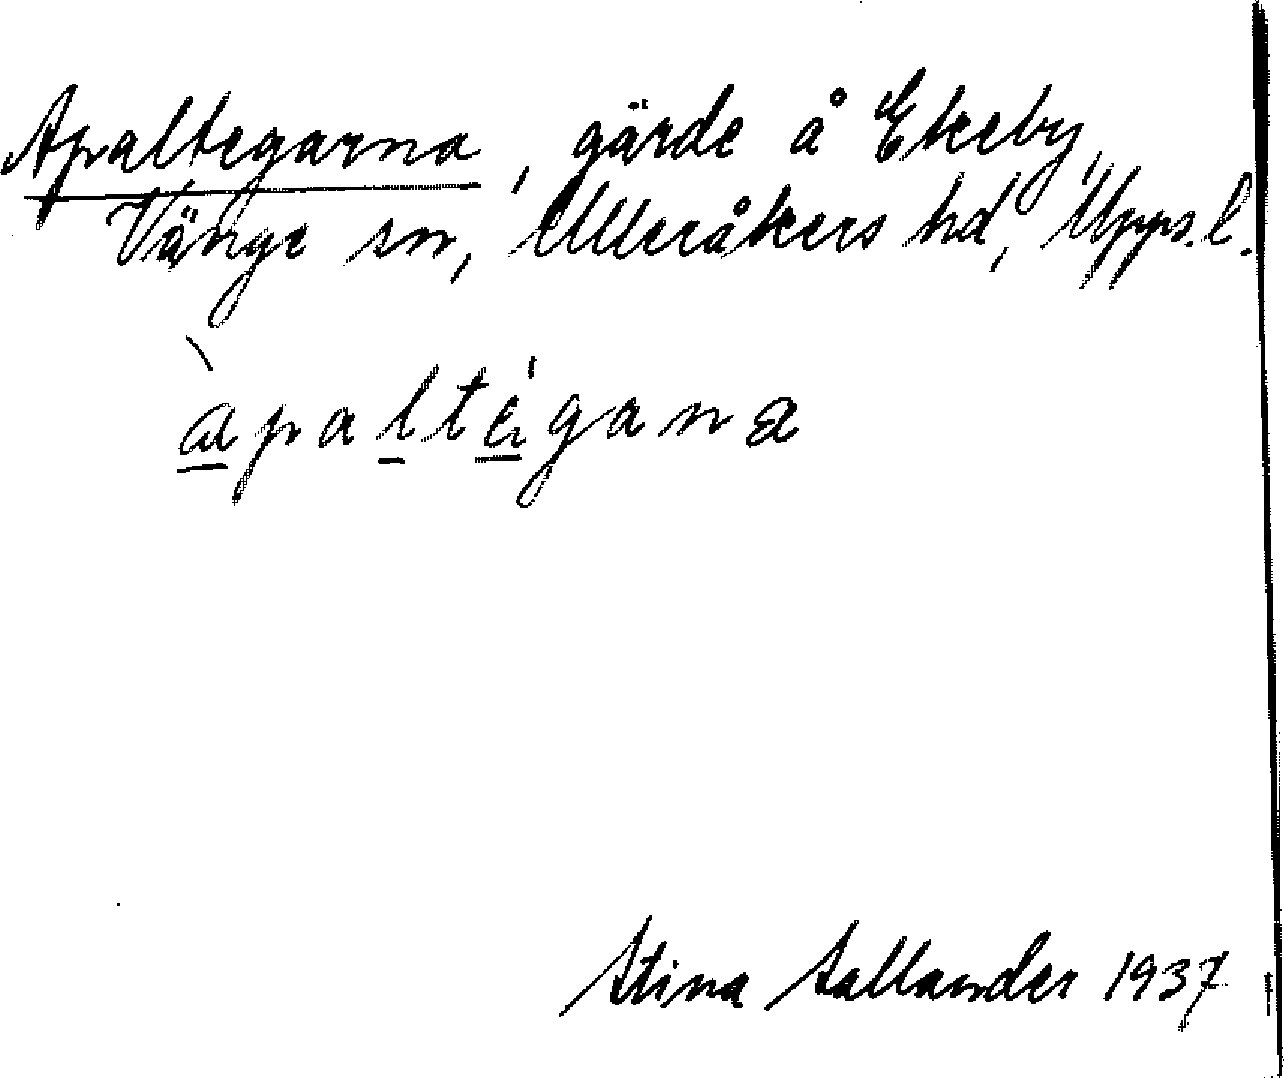 Apaltegarna, gärde å Ekeby,
Vänge sn, Ulleråkers hd, Upps. l.
àpaltégana
Stina Sallander 1937